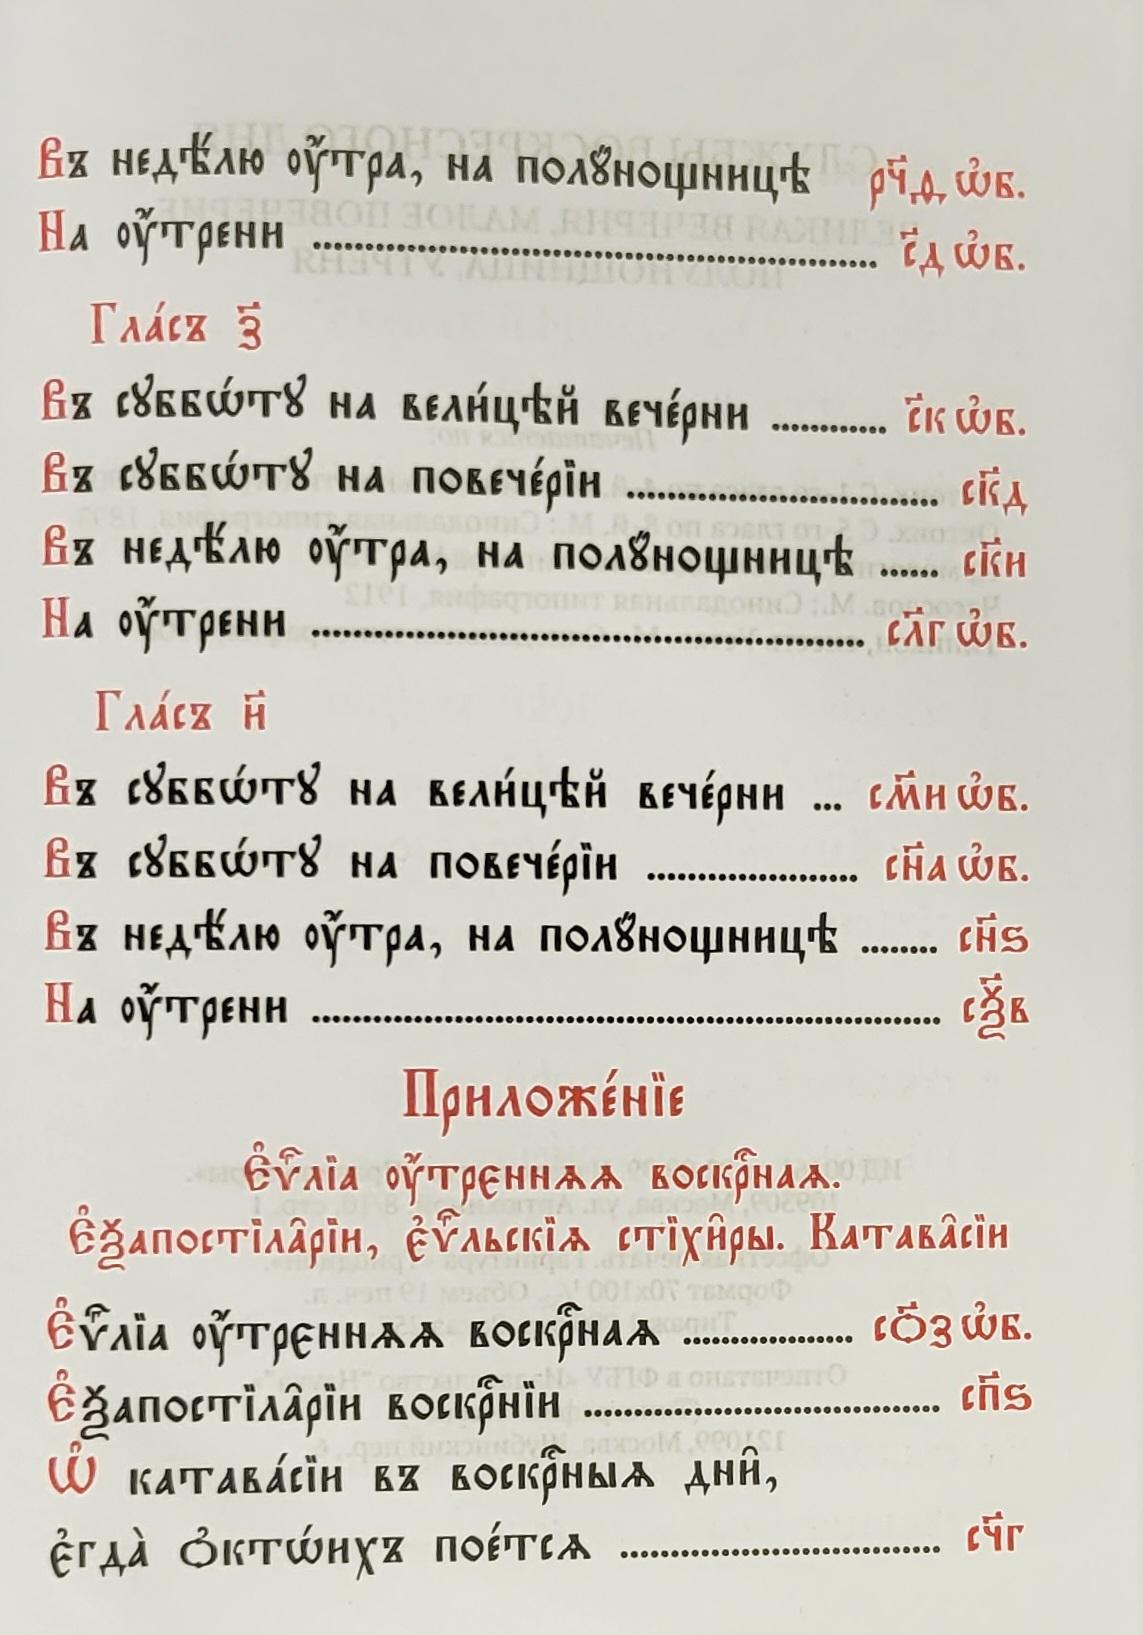 Въ недѣ́лю оу҆́тра, на полꙋ́нощницѣ р҃чд ѡ҆б.
На оу҆́трени с҃д ѡ҆б.
Гла́съ з҃
Въ сꙋббѡ́тꙋ на вели́цѣй вече́рни с҃к ѡ҆б.
Въ сꙋббѡ́тꙋ на повече́рїи ск҃д
Въ недѣ́лю оу҆́тра, на полꙋ́нощницѣ ск҃и
На оу҆́трени сл҃г ѡ҆б.
Гла́съ и҃
Въ сꙋббѡ́тꙋ на вели́цѣй вече́рни см҃и ѡ҆б.
Въ сꙋббѡ́тꙋ на повече́рїи сн҃а ѡ҆б.
Въ недѣ́лю оу҆́тра, на полꙋ́нощницѣ сн҃ѕ
На оу҆́трени сѯ҃в
Приложе́нїе
Є҆ѵⷢ҇лїа оу҆́тренняѧ воскрⷭ҇наѧ.
Є҆ѯапостїла̑рїи, є҆ѵⷢ҇льскїѧ стїхи̑ры. Катава̑сїи
Є҆ѵⷢ҇лїа оу҆́треннѧѧ воскрⷭ҇наѧ со҃з ѡ҆б.
Є҆ѯапостїла̑рїи воскрⷭ҇нїи сп҃ѕ
Ѡ҆ катава́сїи въ воскрⷭ҇ныѧ дни̑,
є҆гда̀ ѻ҆ктѡ́ихъ пое́тсѧ сч҃г